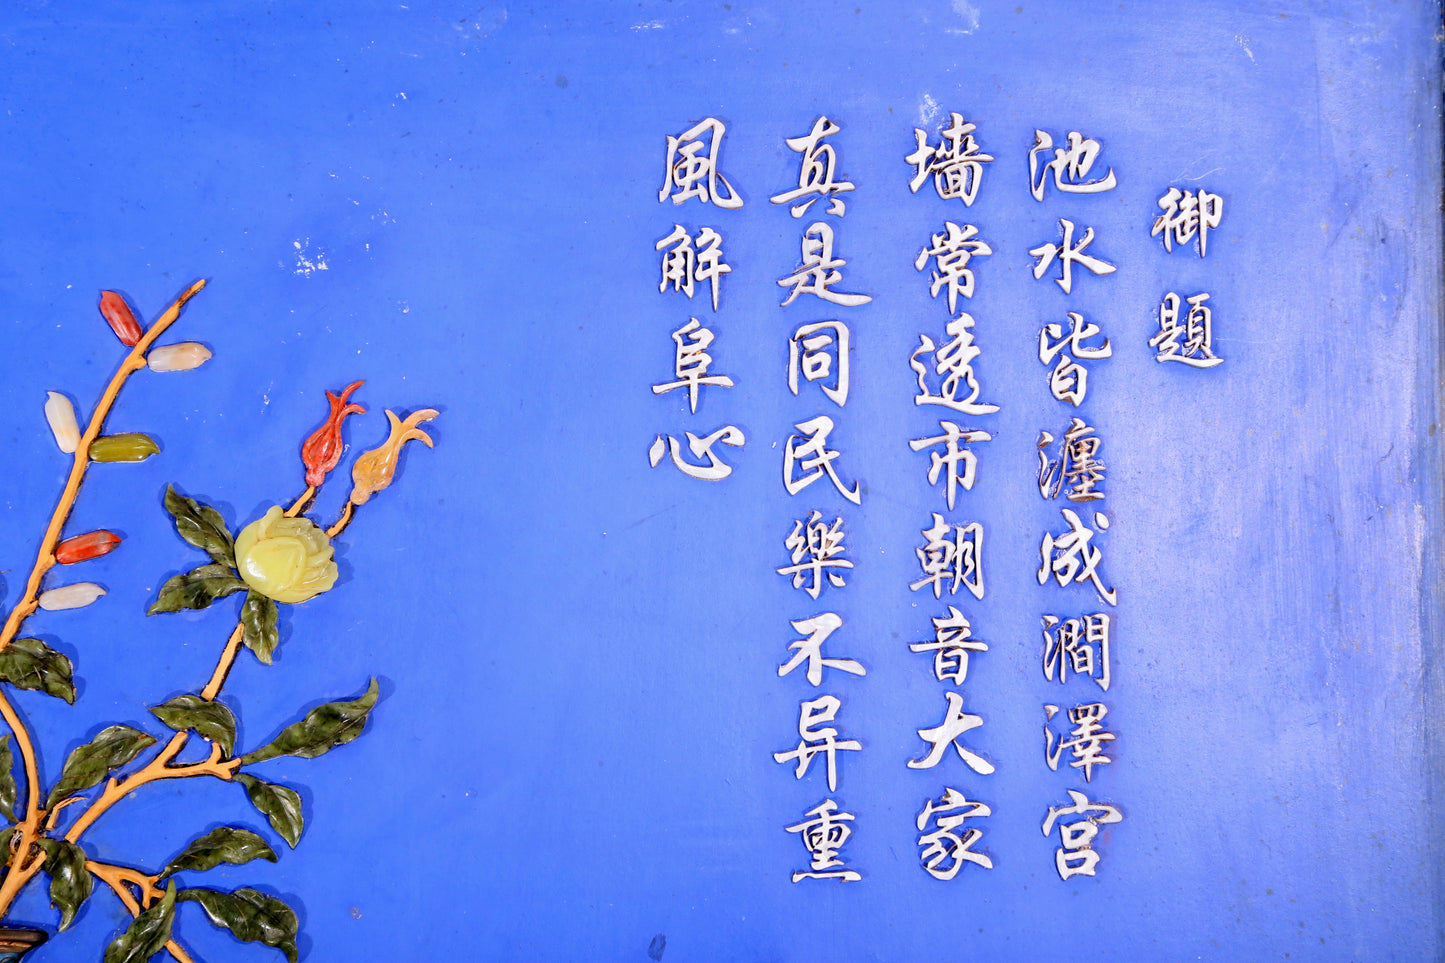 御題
池水皆瀍成澗澤宮
墻常透市朝音大家
真是同民樂不异熏
風解阜心